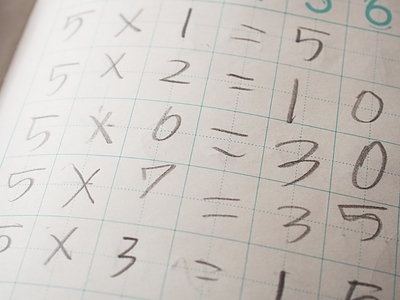 5 6
5 × 1 = 5
5 × 2 = 10
5 × 6 = 30
5 × 7 = 35
5 × 3 = 15